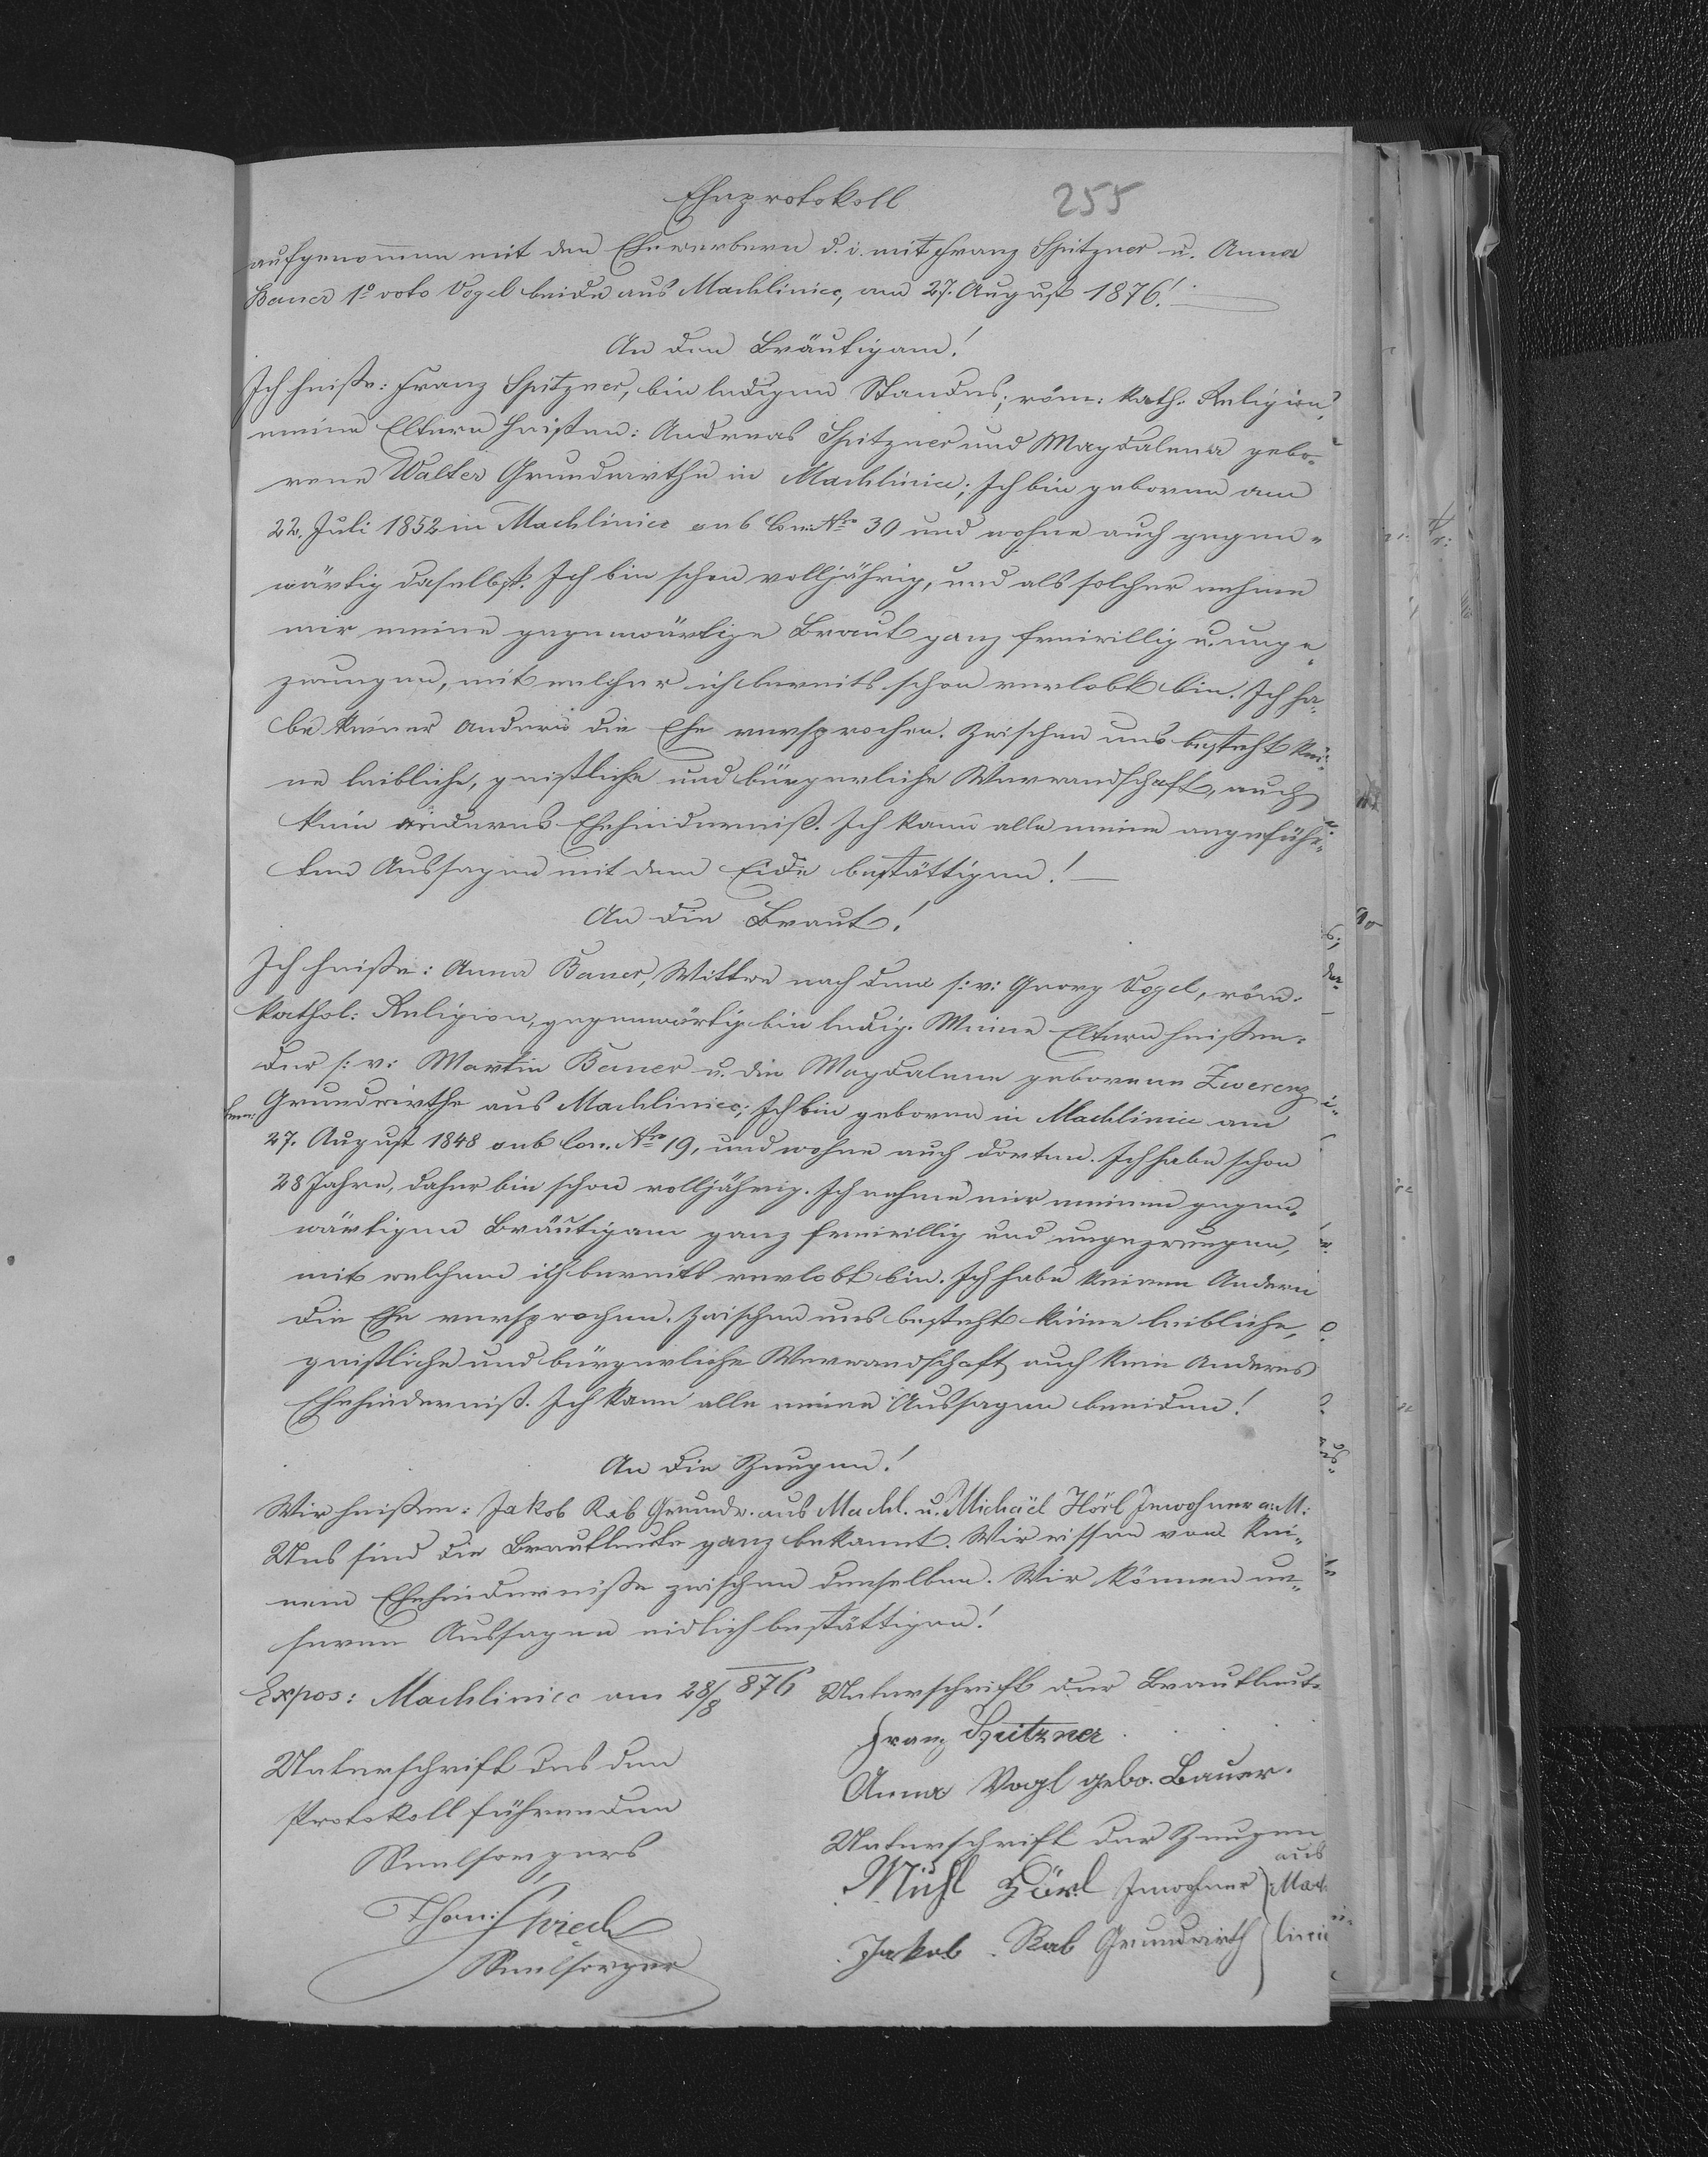 Eheprotokoll 255
aufgenommen mit den Ehewerbern d. i. mit Franz Spitzner u. Anna
Bauer 1º voto Vogel beide aus Machliniec, am 27. August 1876!
An den Bräutigam!
Ich heiße: Franz Spitzner, bin ledigen Standes, röm: kath: Religion,
meine Eltern heißen: Andreas Spitzner und Magdalena gebo-
rene Walter Grundwirthe in Machliniec; Ich bin geboren am
22. Juli 1852 in Machliniec sub Con: Nro 30 und wohne auch gegen-
wärtig daselbst. Ich bin schon volljährig, und als solcher nehme
mir meine gegenwärtige Braut ganz freiwillig u. unge-
zwungen, mit welcher ich bereits schon verlobt bin. Ich ha-
be keiner Andern die Ehe versprochen. Zwischen uns besteht kei-
ne leibliche, geistliche und bürgerliche Verwandschaft, auch
kein anderes Ehehinderniß. Ich kann alle meine angeführ-
ten Aussagen mit dem Eide bestättigen! —
An die Braut!
Ich heiße: Anna Bauer, Wittwe nach dem s: v: Georg Vogel, röm:
kathol: Religion, gegenwärtig bin ledig. Meine Eltern heißen:
der s: v: Martin Bauer u. die Magdalena geborene Zwerenz
Grundwirthe aus Machliniec; Ich bin geboren in Machliniec am
27. August 1848 sub Con. Nro 19, und wohne auch dorten. Ich habe schon
28 Jahre, daher bin schon volljährig. Ich nehme mir meinen gegen-
wärtigen Bräutigam ganz freiwillig und ungezwungen,
mit welchem ich bereits verlobt bin. Ich habe keinem Andern
die Ehe versprochen. Zwischen uns besteht keine leibliche,
geistliche und bürgerliche Verwandschaft, auch kein Anderes
Ehehinderniß. Ich kann alle meine Aussagen beeiden!
An die Zeugen!
Wir heißen: Jakob Rab Grundw. aus Machl. u. Michael Hörl Inwohner a: M:
Uns sind die Brautleute ganz bekannt. Wir wissen von kei-
nem Ehehinderniße zwischen denselben. Wir können un-
seren Aussagen eidlich bestättigen!
Expos: Machliniec am 28/8 876 Unterschrift der Brautleute
Franz Spitzner
Unterschrift des den
Anna Vogl gebo. Bauer.
Protokoll führenden
Unterschrift der Zeugen
Seelsorgers
Michl Hörl Inwohner aus Mach
Jakob Rab Grundwirth liniec
Seelsorger